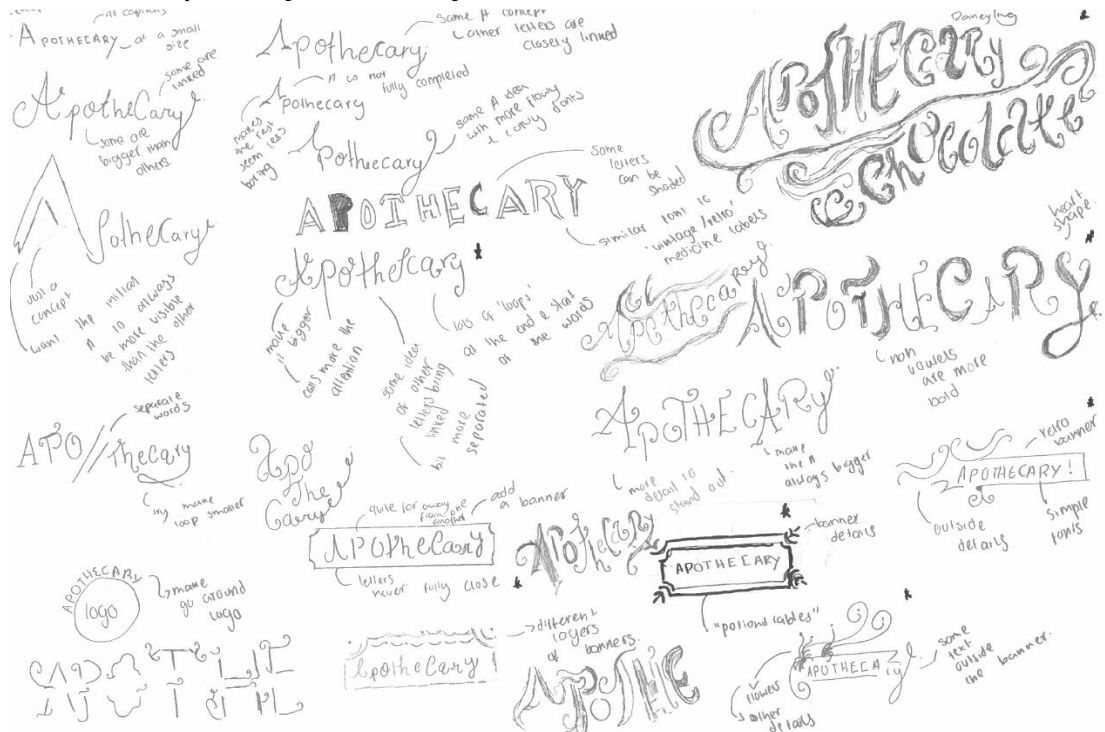 all capitals
APOTHECARY
at a small
size
ApotheCary
some are
linked
some are
bigger than
others.
Apothecary
just a
concept
want the initial
A to allways
be more visible
than the other
letters
APO//Thecary
separate
words
try make
loop smaller
APOTHECARY
logo
make
go around
logo
Apothecary
same A concept
other letters are
closely linked
Apothecary
A is not
fully completed
makes
the rest
seem less
boring
Apothecary
same A idea
with more flowy
& curvy fonts
APOTHECARY
some
letters
can be
shaded
similar font to
'vintage/retro'
medicine labels
Apothecary
make
it bigger
calls more the
attention
some idea
of other
letters being
linked
bit more
separated
lots of 'loops'
at the end & start
of the words
Apo
The
Cary
quite far away
from one
another
add
a banner
APOTheCary
letters
never fully close
Apothecary
different
layers
of banners.
APOTHECARY
Chocolate
Apothecary
APOTHECARY
heart
shape
non
vowels
are more
bold
APOTHECARY
more
detail to
stand out.
make
the A
always bigger
APOTHECARY!
retro
banner
outside
details
simple
fonts
Apothecary
APOTHECARY
banner
details
"potions lables"
APOTHE
APOTHECARY
flowers
other
details
some
text
outside
the banner.